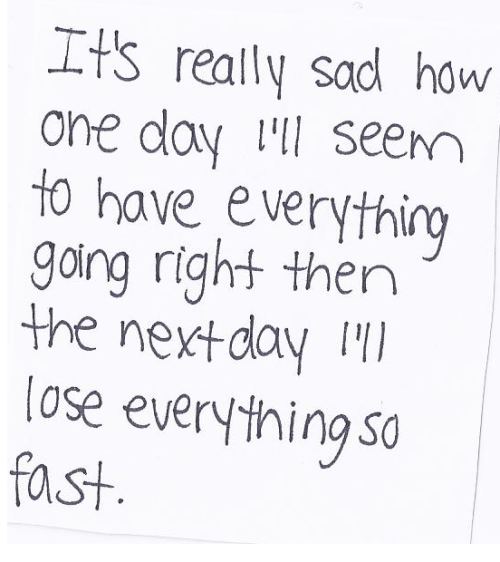 It's really sad how
one day I'll seem
to have everything
going right then
the next day I'll
lose everything so
fast.